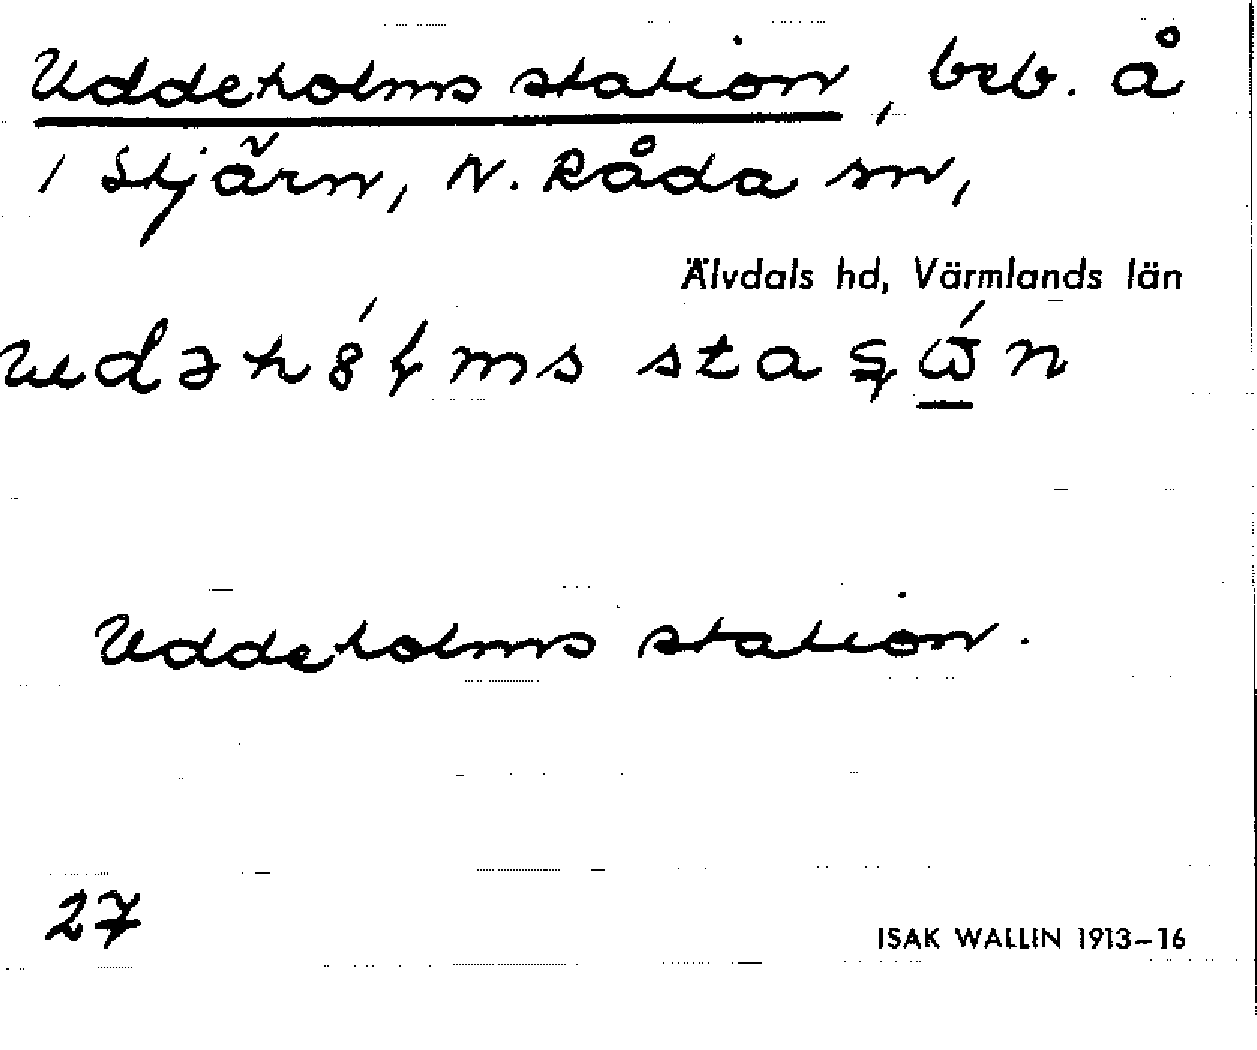 Uddeholms station, beb. å
1 Stjärn, N. Råda sn,
Älvdals hd, Värmlands län
Uddeholms station.
27
ISAK WALLIN 1913–16